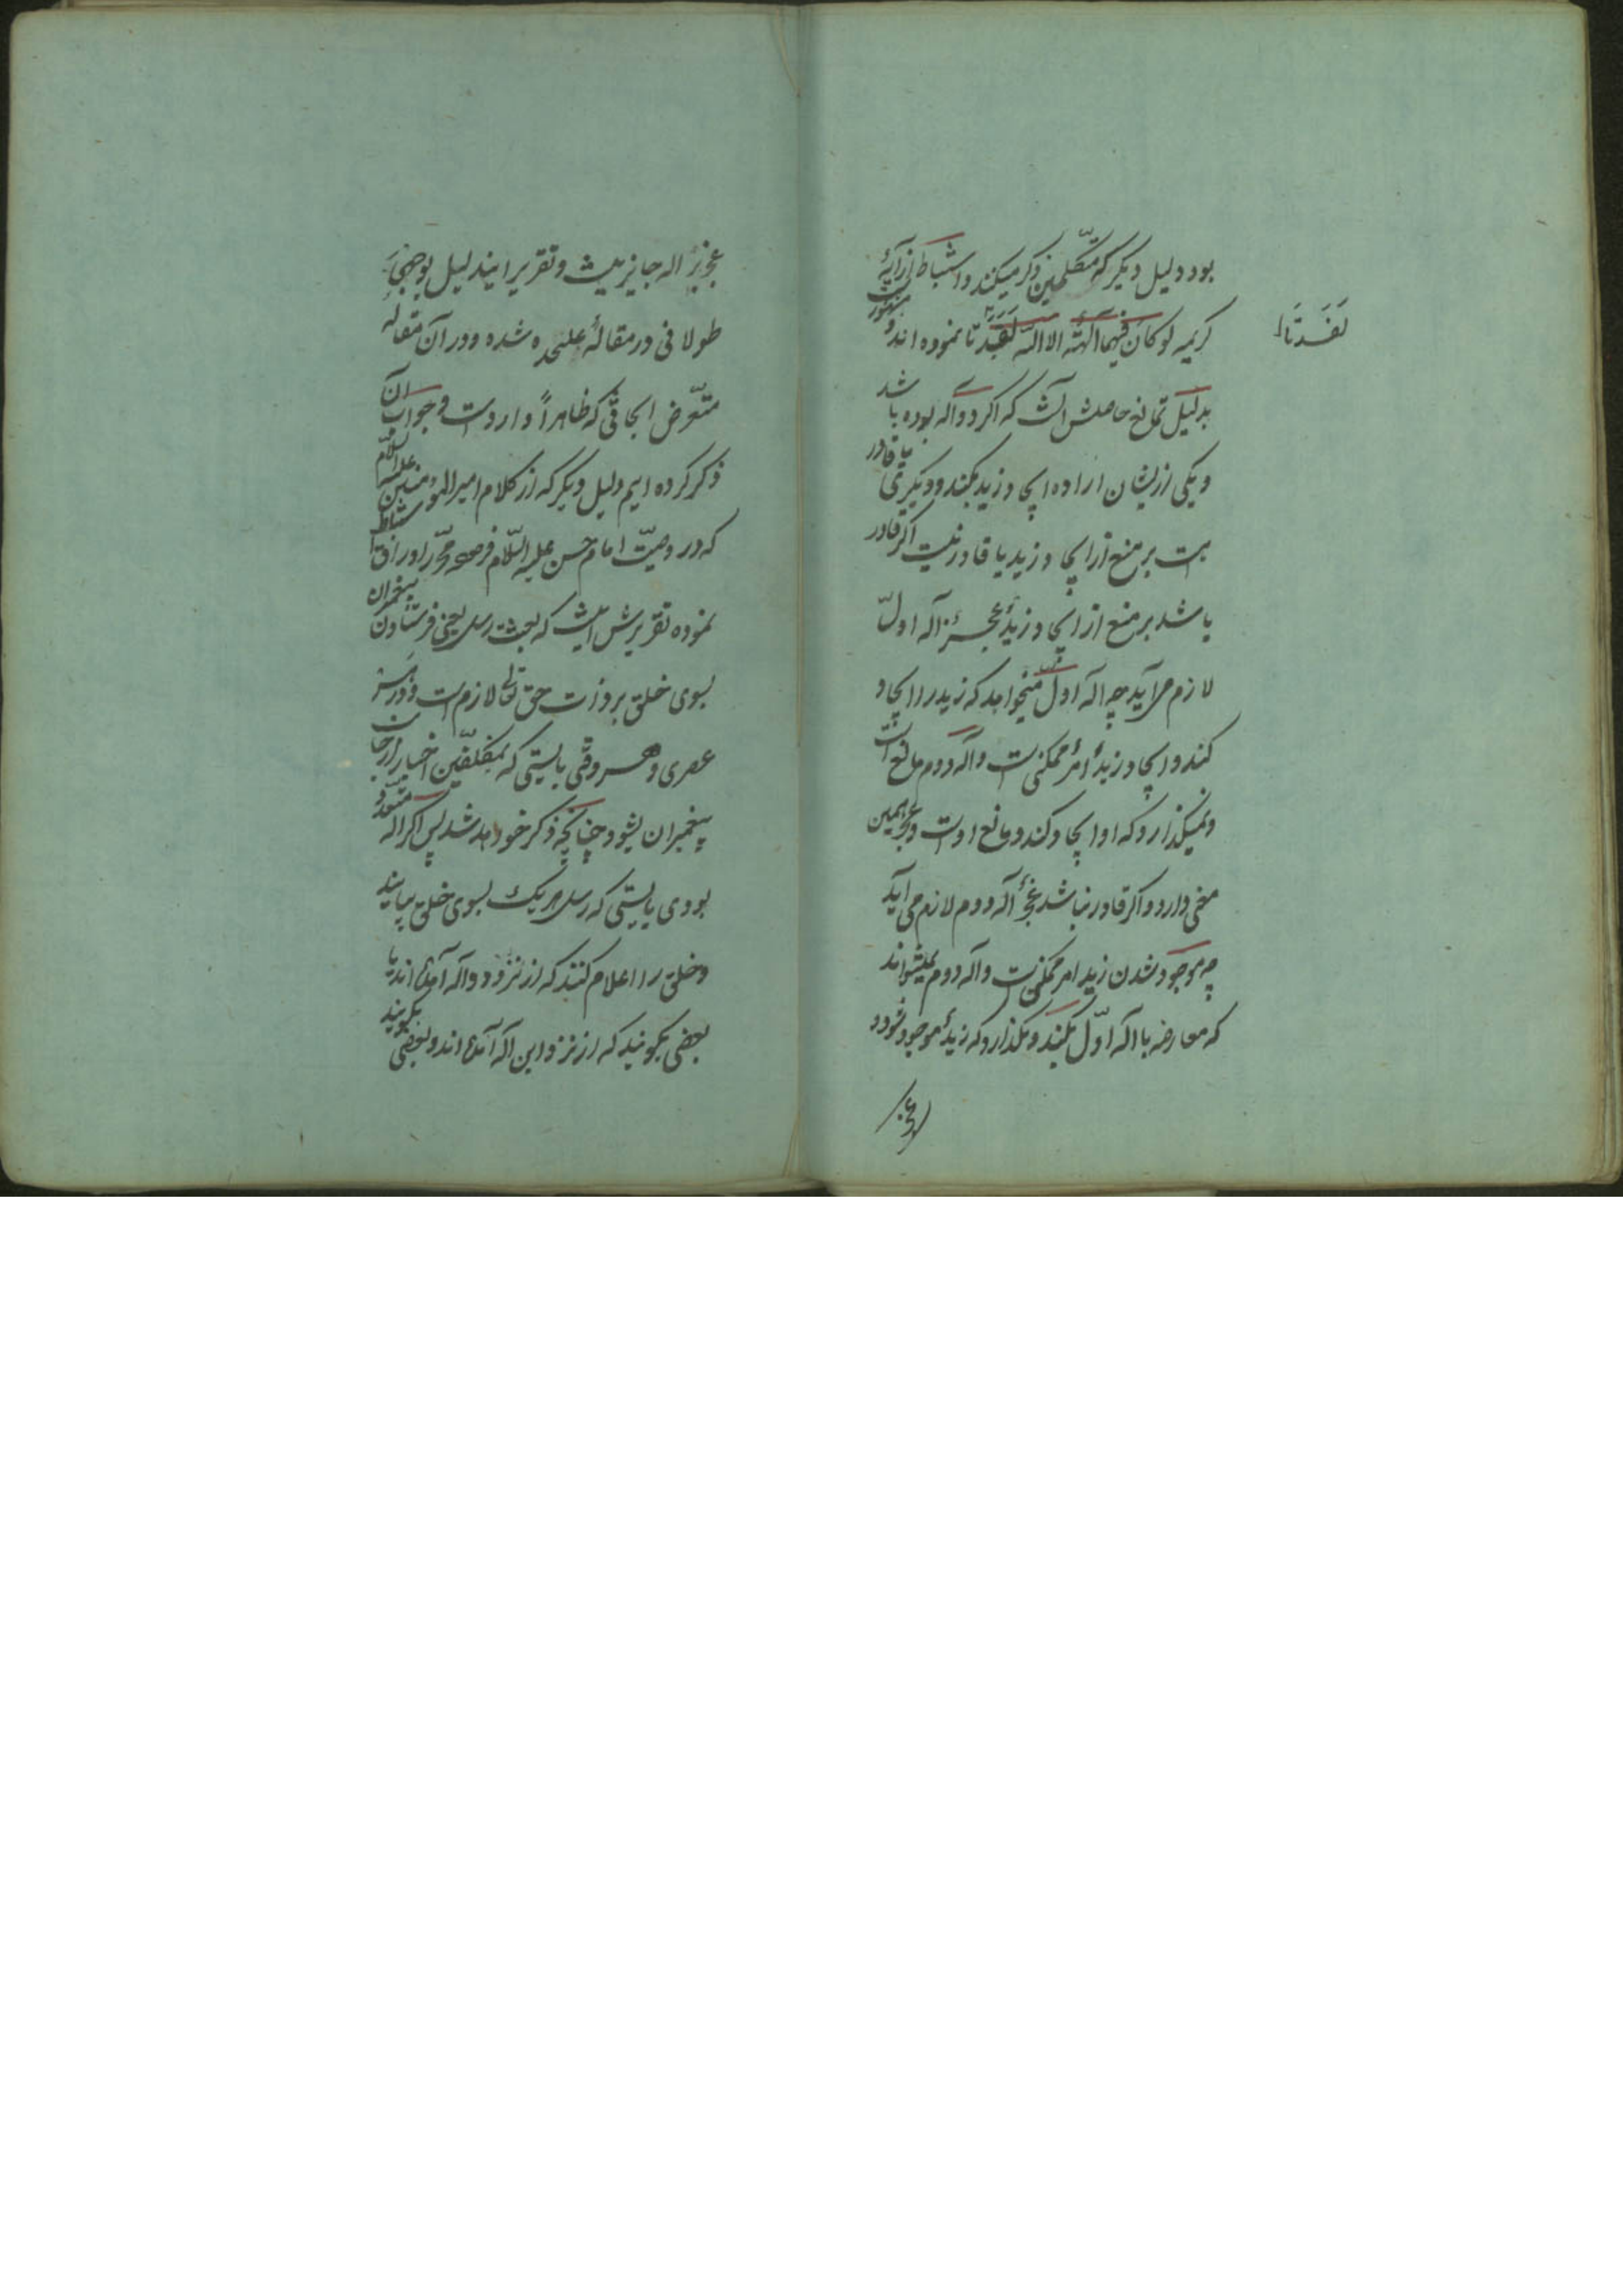 بود دلیل دیگر که متکلمین ذکر میکنند و استنباط از آیهٔ
کریمه لو کان فیهما آلهة الا الله لفسدتا نموده اند و مشهورست
لفسدتا
بدلیل تمانع حاصلش آنست که اگر دو آله بوده باشد
و یکی ازیشان اراده ایجاد زید بکند و دیگری یا قادر
است بر منع از ایجاد زید یا قادر نیست اگر قادر
باشد بر منع از ایجاد زید عجز اله اول
لازم می آید چه اله اول میخواهد که زید را ایجاد
کند و ایجاد زید امر ممکنی است و اله دوم مانع است
و نمیگذارد که او ایجاد کند و مانع اوست و عجز همین
معنی دارد و اگر قادر نباشد عجز اله دوم لازم می آید
چه موجود شدن زید امر ممکنی است و اله دوم نمیتواند
که معارضه با اله اول بکند و نگذارد که زید موجود شود و
و عجز
عجز اله جایز نیست و تقریر ایندلیل بوجهی
طولانی در مقالهٔ علیحده شده و در آن مقاله
متعرض ابحاثی که ظاهراً وارد است و جواب آن
ذکر کرده ایم دلیل دیگر که از کلام امیر المؤمنین علیه السلام
که در وصیت امام حسن علیه السلام فرموده محرر اوراق استنباط
نموده تقریرش اینست که بعثت رسل یعنی فرستادن پیغمبران
بسوی خلق بر ذات حق تعالی لازم است و در هر
عصری و هر وقتی بایستی که بمکلفین اخبار از جانب
پیغمبران بشود چنانچه ذکر خواهد شد پس اگر اله متعدد
بودی بایستی که رسل هر یک بسوی خلق بیایند
و خلق را اعلام کنند که از نزد دو اله آمده اند یا
بعضی بگویند که از نزد این اله آمده اند و بعضی بگویند